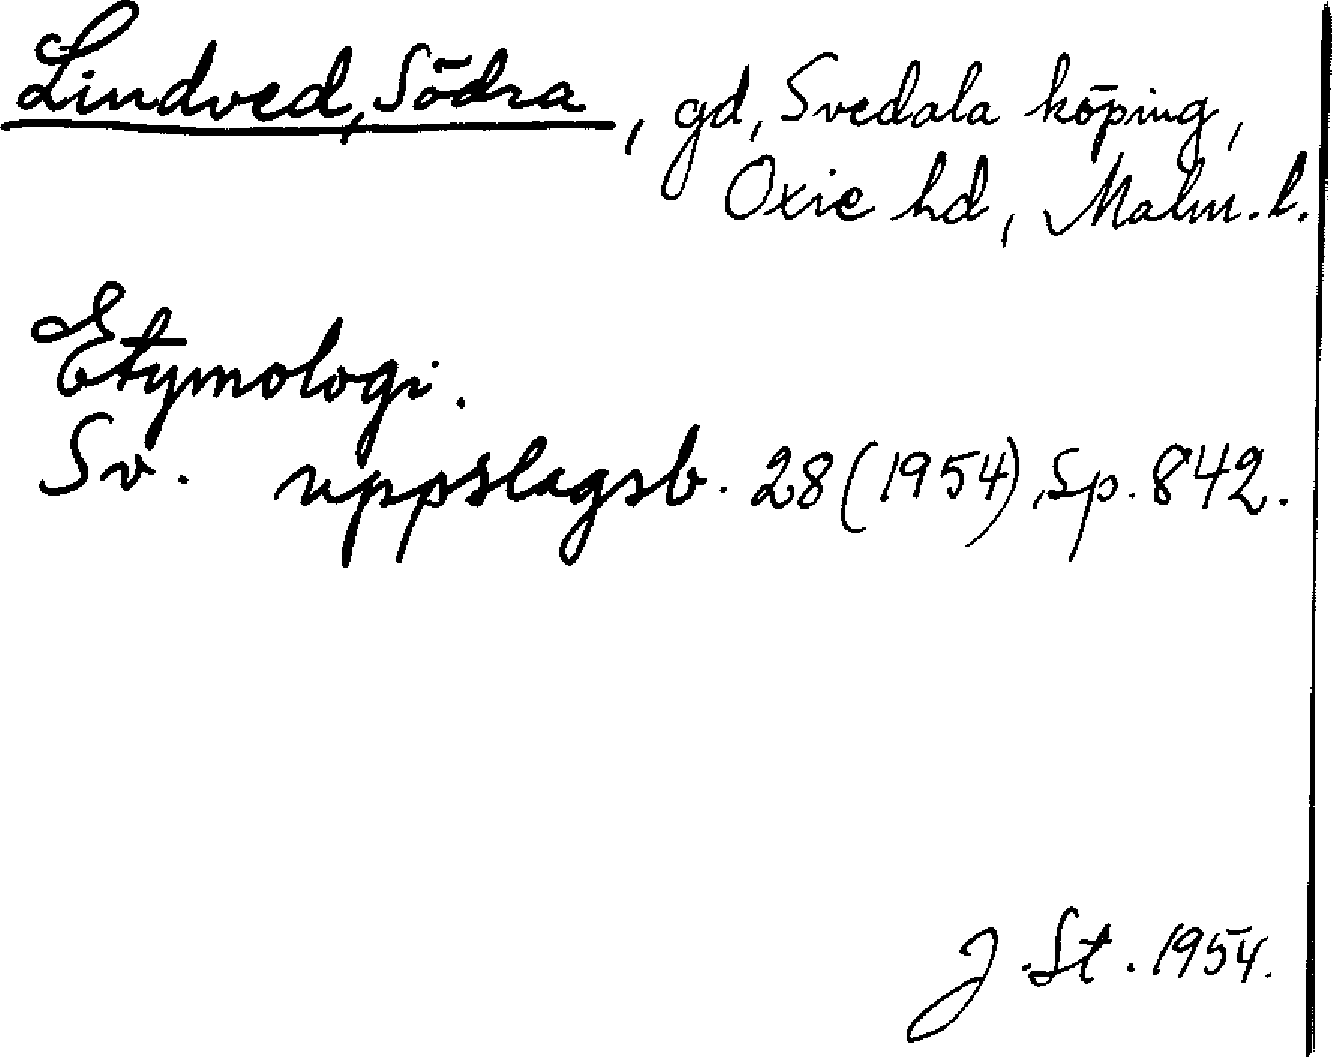 Lindved, Södra, gd, Svedala köping,
Oxie hd, Malm. l.
Etymologi.
Sv. uppslagsb. 28 (1954), Sp. 842.
J. St. 1954.